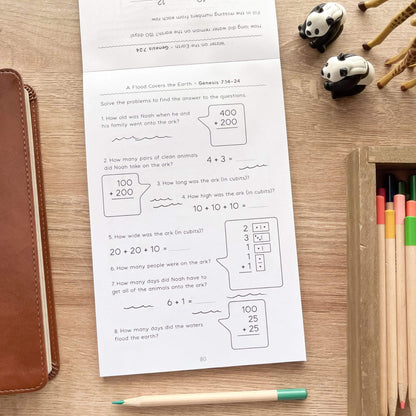 Fill in the missing numbers from each row
How long did water remain on the earth? (150 days)
Water on the Earth - Genesis 7:24
A Flood Covers the Earth - Genesis 7:14-24
Solve the problems to find the answer to the questions.
1. How old was Noah when he and
his family went onto the ark?
400
+ 200
2. How many pairs of clean animals
did Noah take on the ark?
4 + 3 =
100
+ 200
3. How long was the ark (in cubits)?
4. How high was the ark (in cubits)?
10 + 10 + 10 =
5. How wide was the ark (in cubits)?
20 + 20 + 10 =
6. How many people were on the ark?
2
3
1
1
+ 1
7. How many days did Noah have to
get all of the animals onto the ark?
6 + 1 =
8. How many days did the waters
flood the earth?
100
25
+ 25
80